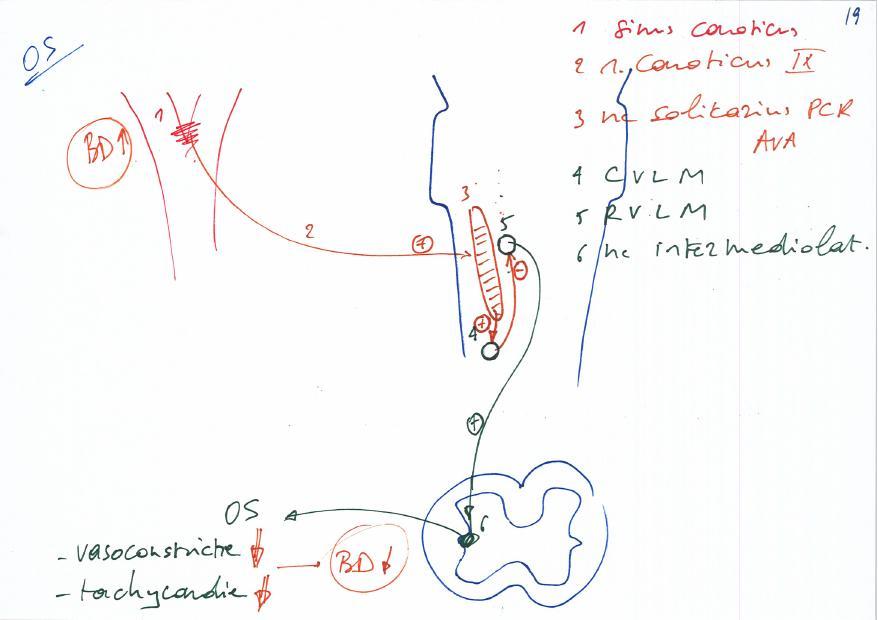 19
OS
1 Sinus caroticus
2 n. Caroticus IX
3 nc solitarius PCR
AVA
4 CVLM
5 RVLM
6 nc intermediolat.
BD↑
1
2
+
3
5
-
+
4
+
6
OS
- vasoconstrictie ↓
- tachycardie ↓
BD↓